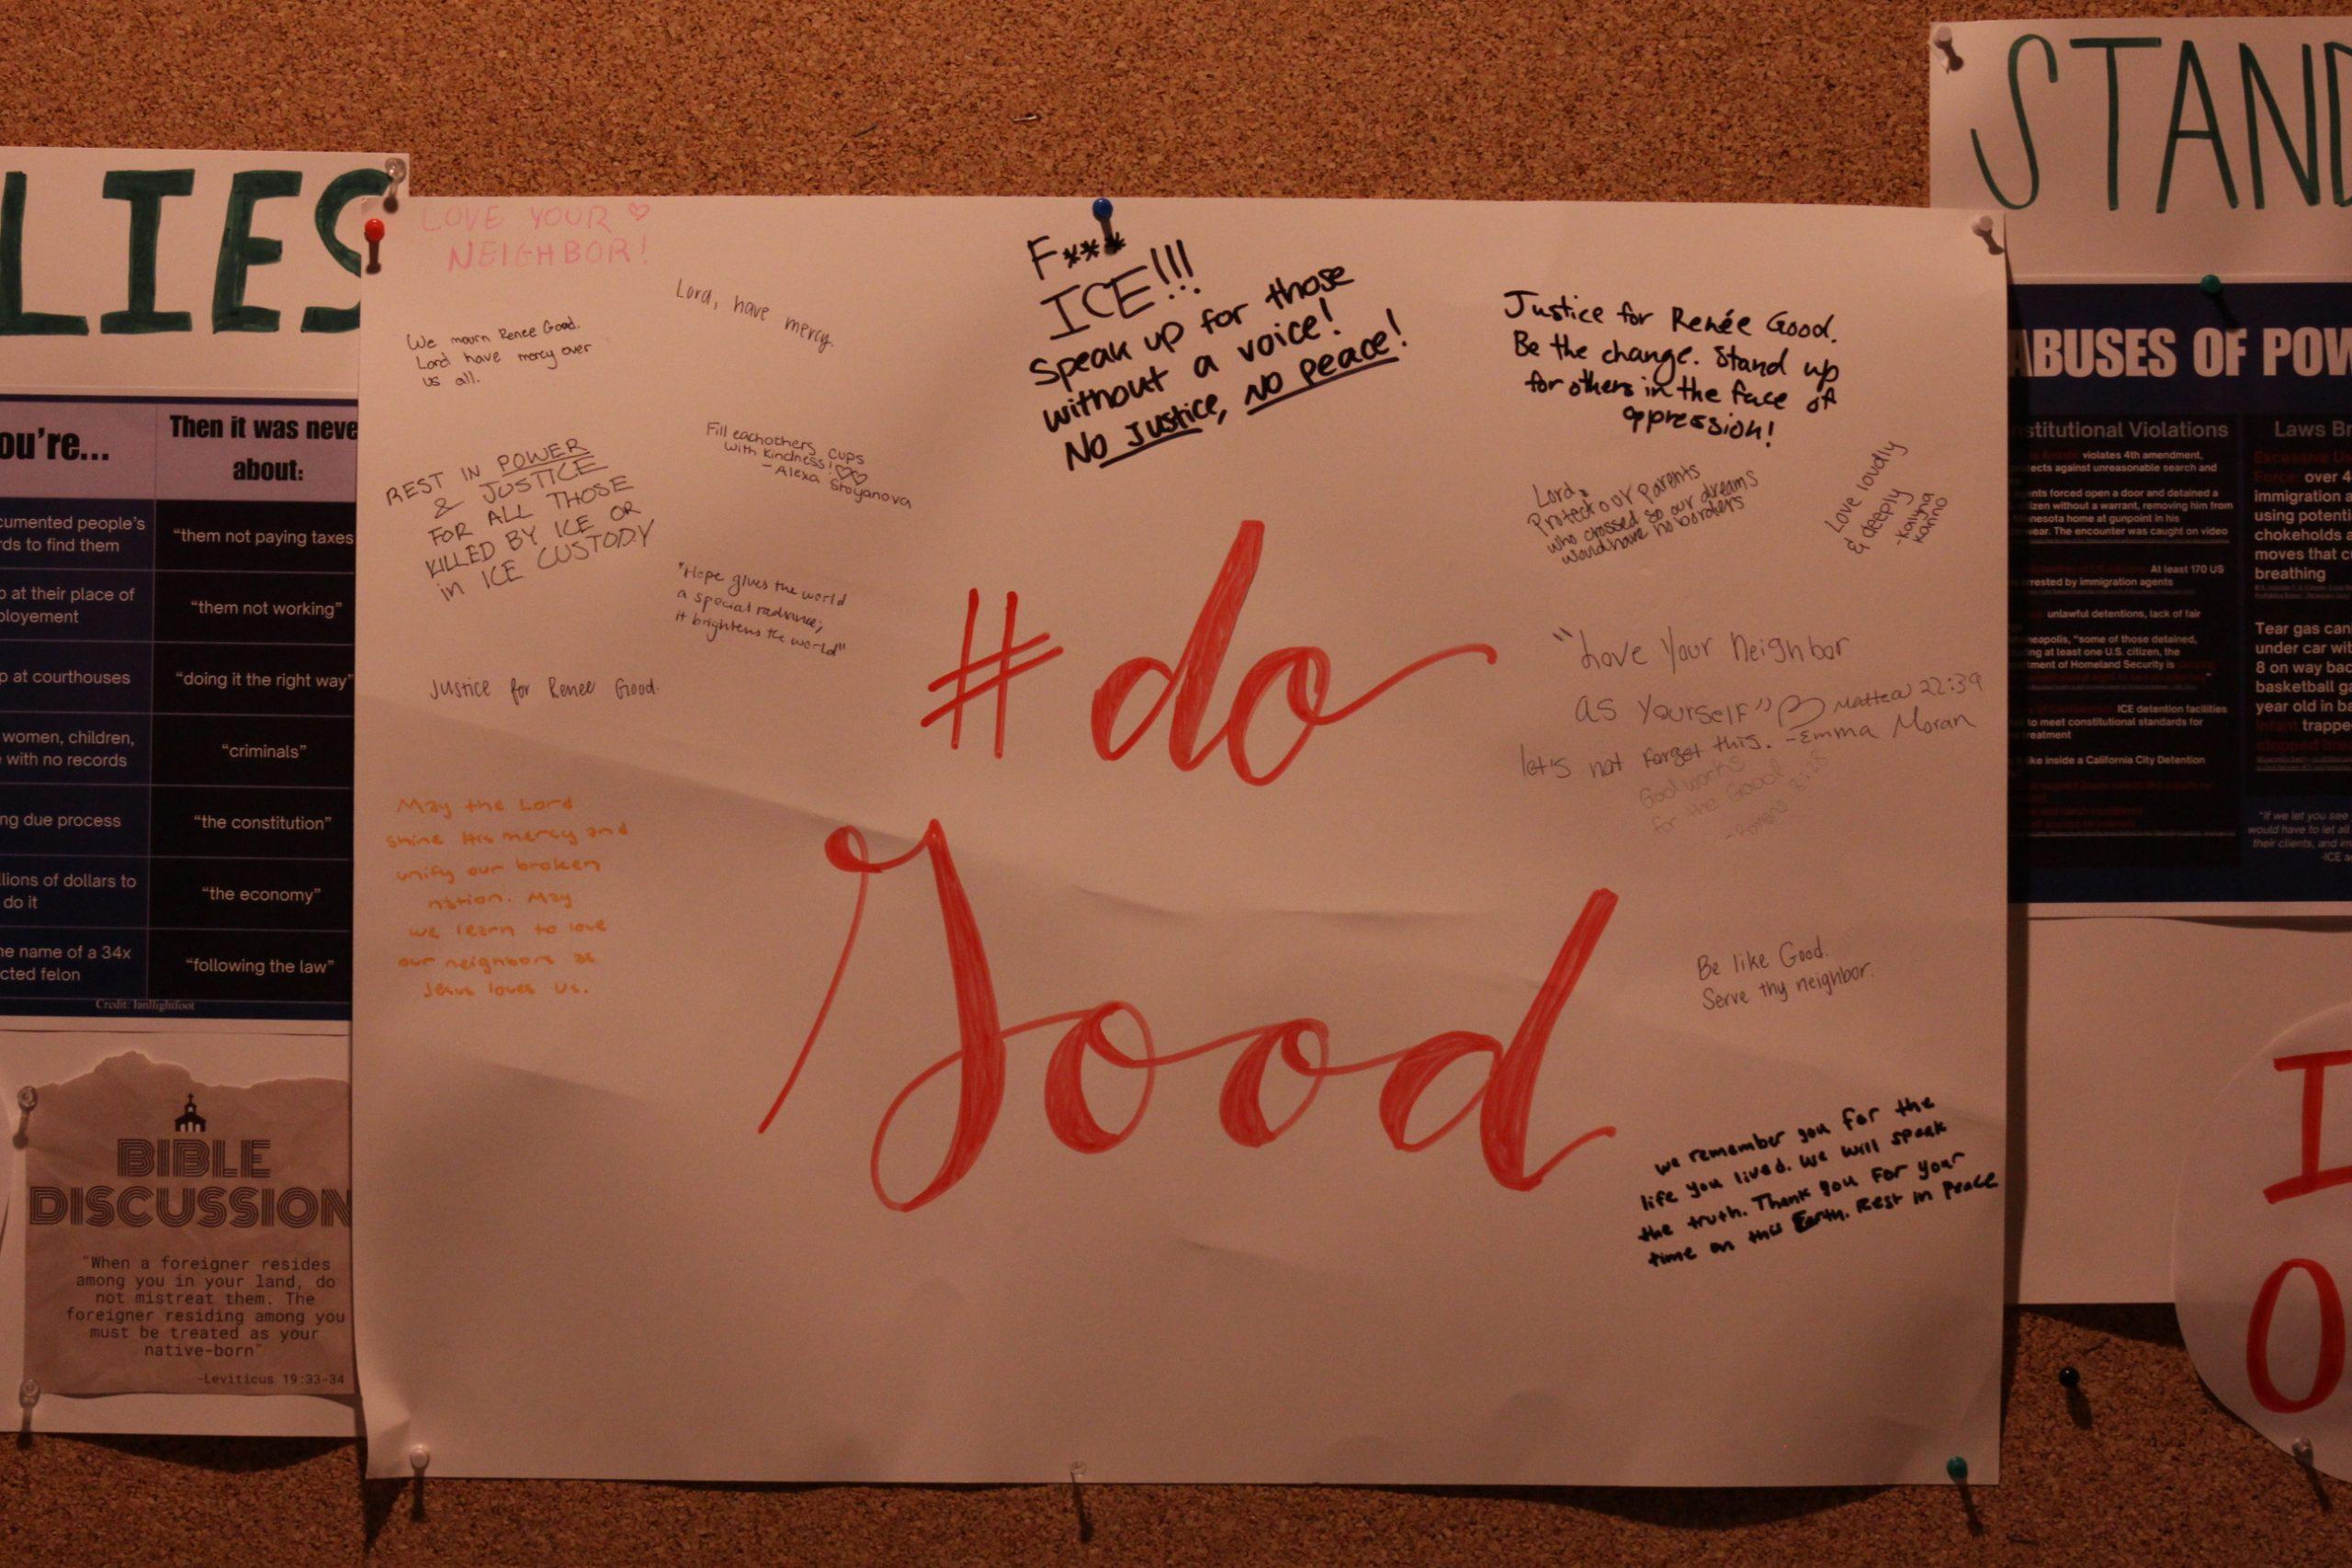 LIES
ou're...
Then it was neve
about:
cumented people's
rds to find them
"them not paying taxes
p at their place of
ployement
"them not working"
p at courthouses
"doing it the right way"
women, children,
with no records
"criminals"
ng due process
"the constitution"
llions of dollars to
do it
"the economy"
he name of a 34x
cted felon
"following the law"
Credit: Ianflightfoot
BIBLE
DISCUSSION
"When a foreigner resides
among you in your land, do
not mistreat them. The
foreigner residing among you
must be treated as your
native-born"
-Leviticus 19:33-34
LOVE YOUR
NEIGHBOR!
We mourn Renee Good.
Lord have mercy over
us all.
Lord, have mercy.
REST IN POWER
& JUSTICE
FOR ALL THOSE
KILLED BY ICE OR
in ICE CUSTODY
Fill eachothers cups
with kindness!
-Alexa Stoyanova
"Hope gives the world
a special radiance;
it brightens the world"
Justice for Renee Good.
May the Lord
shine His mercy and
unify our broken
nation. May
we learn to love
our neighbors as
Jesus loves us.
F***
ICE!!!
Speak up for those
without a voice!
No Justice, No peace!
#do
Good
Justice for Renée Good.
Be the change. Stand up
for others in the face of
oppression!
Lord,
Protect our parents
who crossed so our dreams
would have no borders
Love loudly
& deeply
"Love your neighbor
as yourself" 22:39
let's not forget this. -Emma Moran
God works
for the Good
Be like Good.
Serve thy neighbor.
we remember you for the
life you lived. We will speak
the truth. Thank you for your
time on this Earth. Rest in Peace
STAND
ABUSES OF POW
stitutional Violations
violates 4th amendment,
ects against unreasonable search and
nts forced open a door and detained a
izen without a warrant, removing him from
nesota home at gunpoint in his
ear. The encounter was caught on video
At least 170 US
rrested by immigration agents
unlawful detentions, lack of fair
neapolis, "some of those detained,
ng at least one U.S. citizen, the
tment of Homeland Security is
ICE detention facilities
to meet constitutional standards for
treatment
ike inside a California City Detention
Laws Br
Excessive Us
Force: over 4
immigration a
using potenti
chokeholds a
moves that c
breathing
Tear gas can
under car wit
8 on way bac
basketball ga
year old in ba
infant trappe
"If we let you see
would have to let al
their clients, and im
-ICE a
I
O